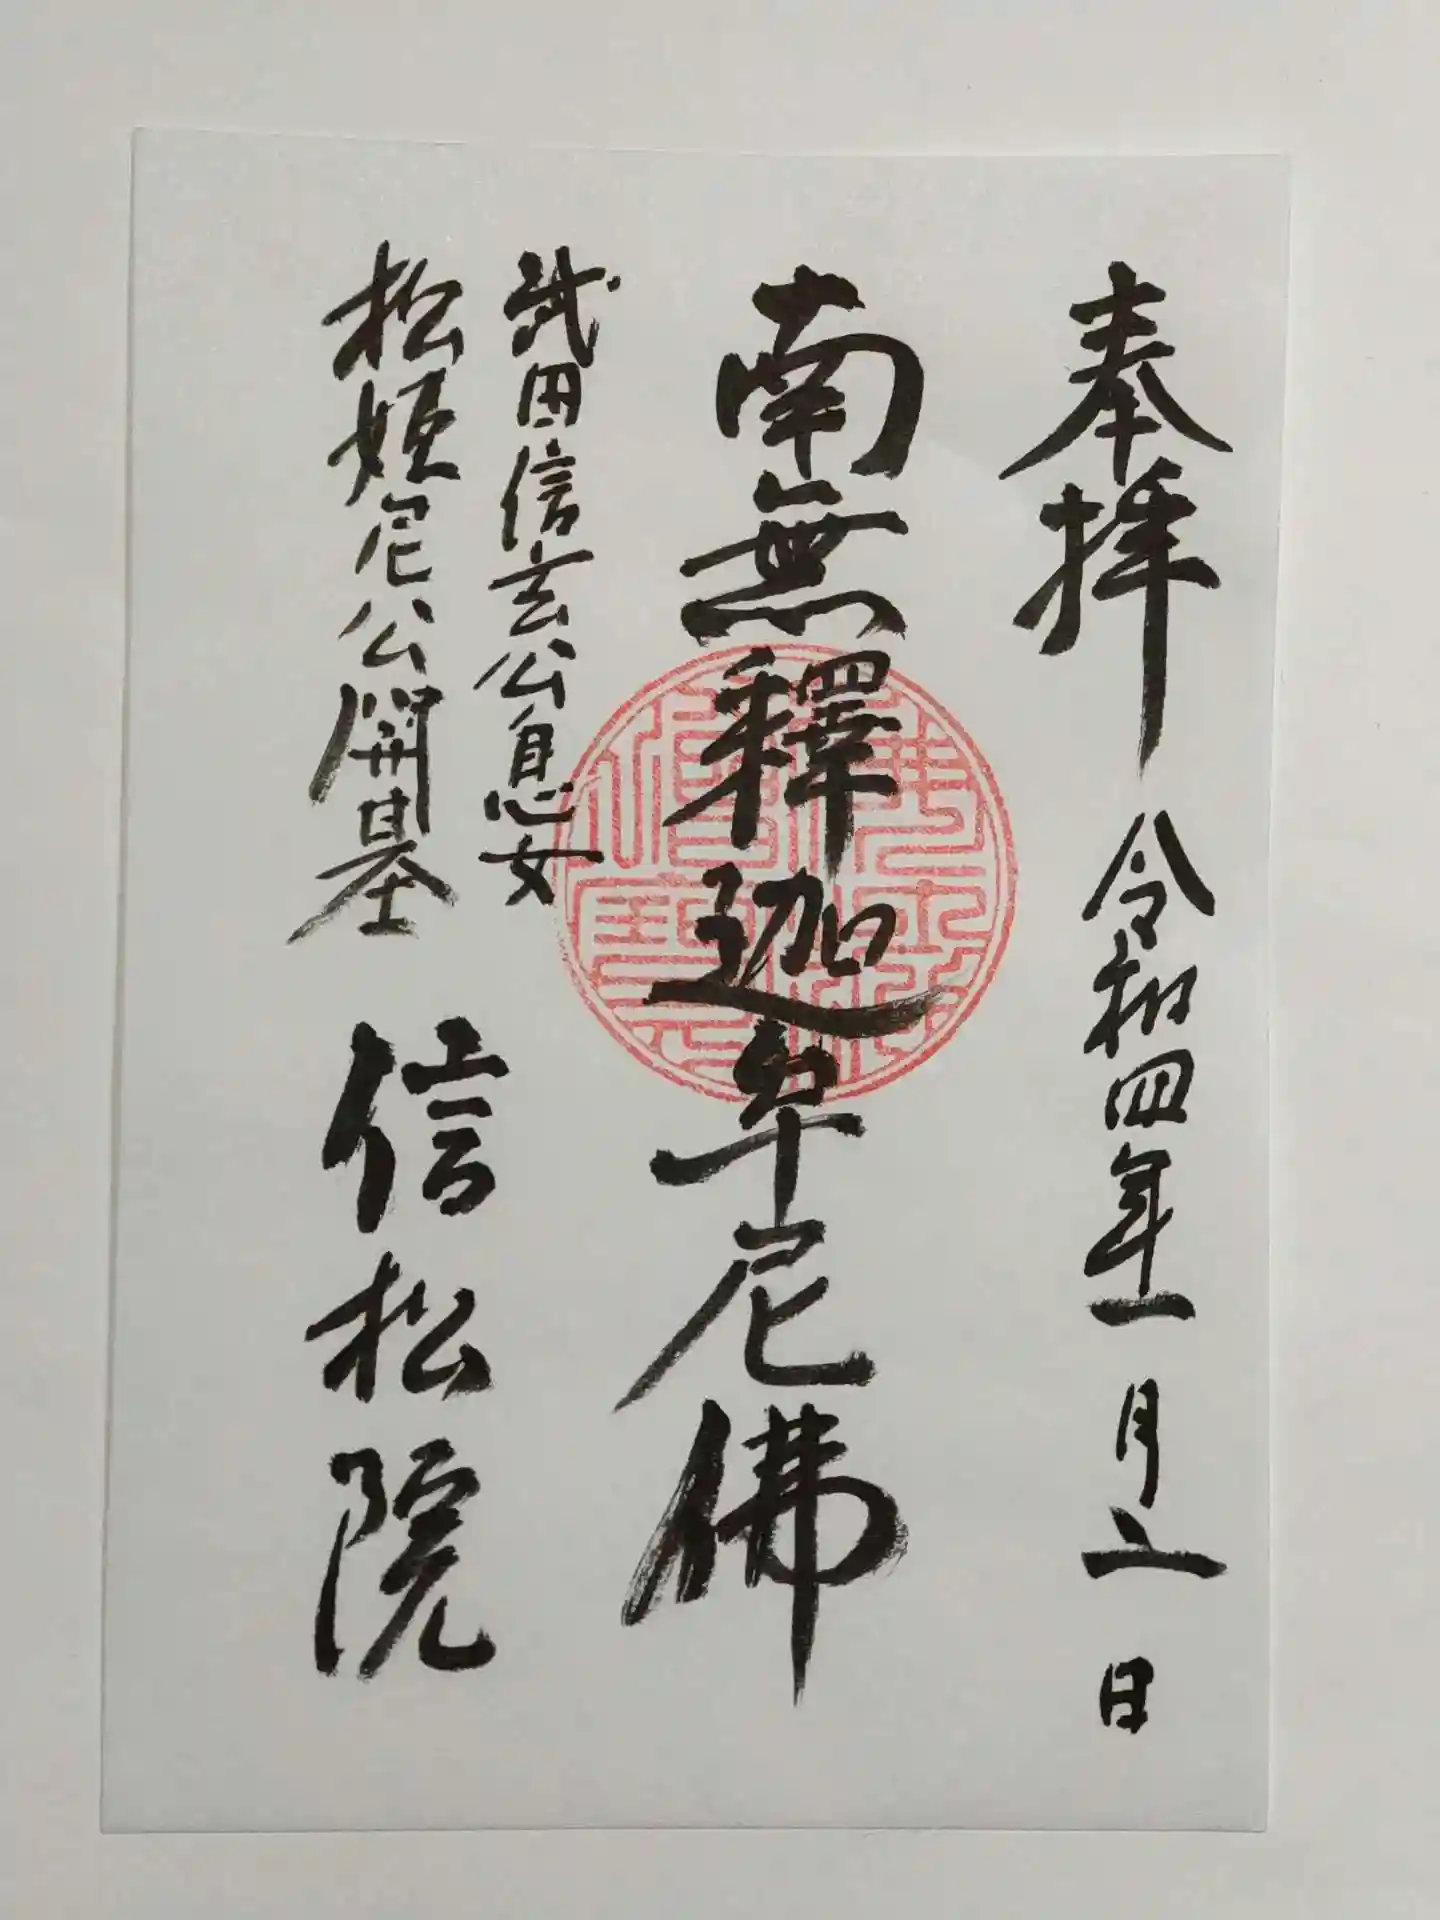 奉拝 令和四年一月 日
南無釋迦牟尼佛
武田信玄公息女
松姫尼公開基
信松院